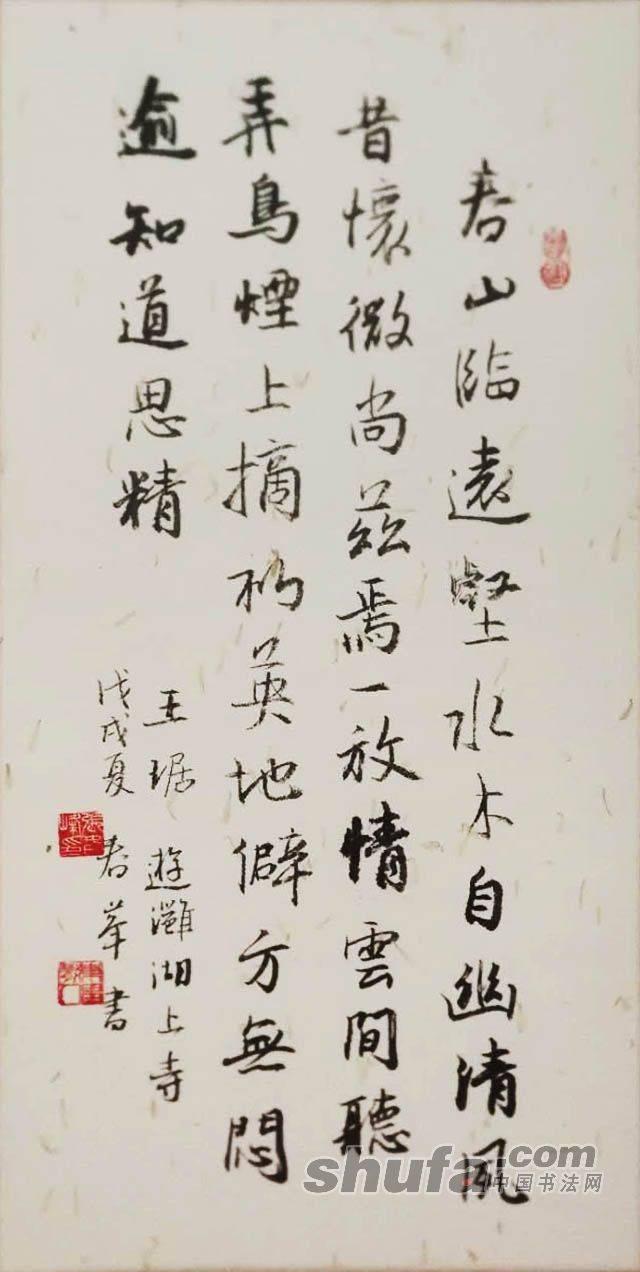 春山臨遠壑水木自幽清夙
昔懷微尚茲焉一放情雲間聽
弄鳥煙上摘初英地僻方無悶
逾知道思精
王琚 遊灉湖上寺
戊戌夏 春峯書
shufa.com
中国书法网